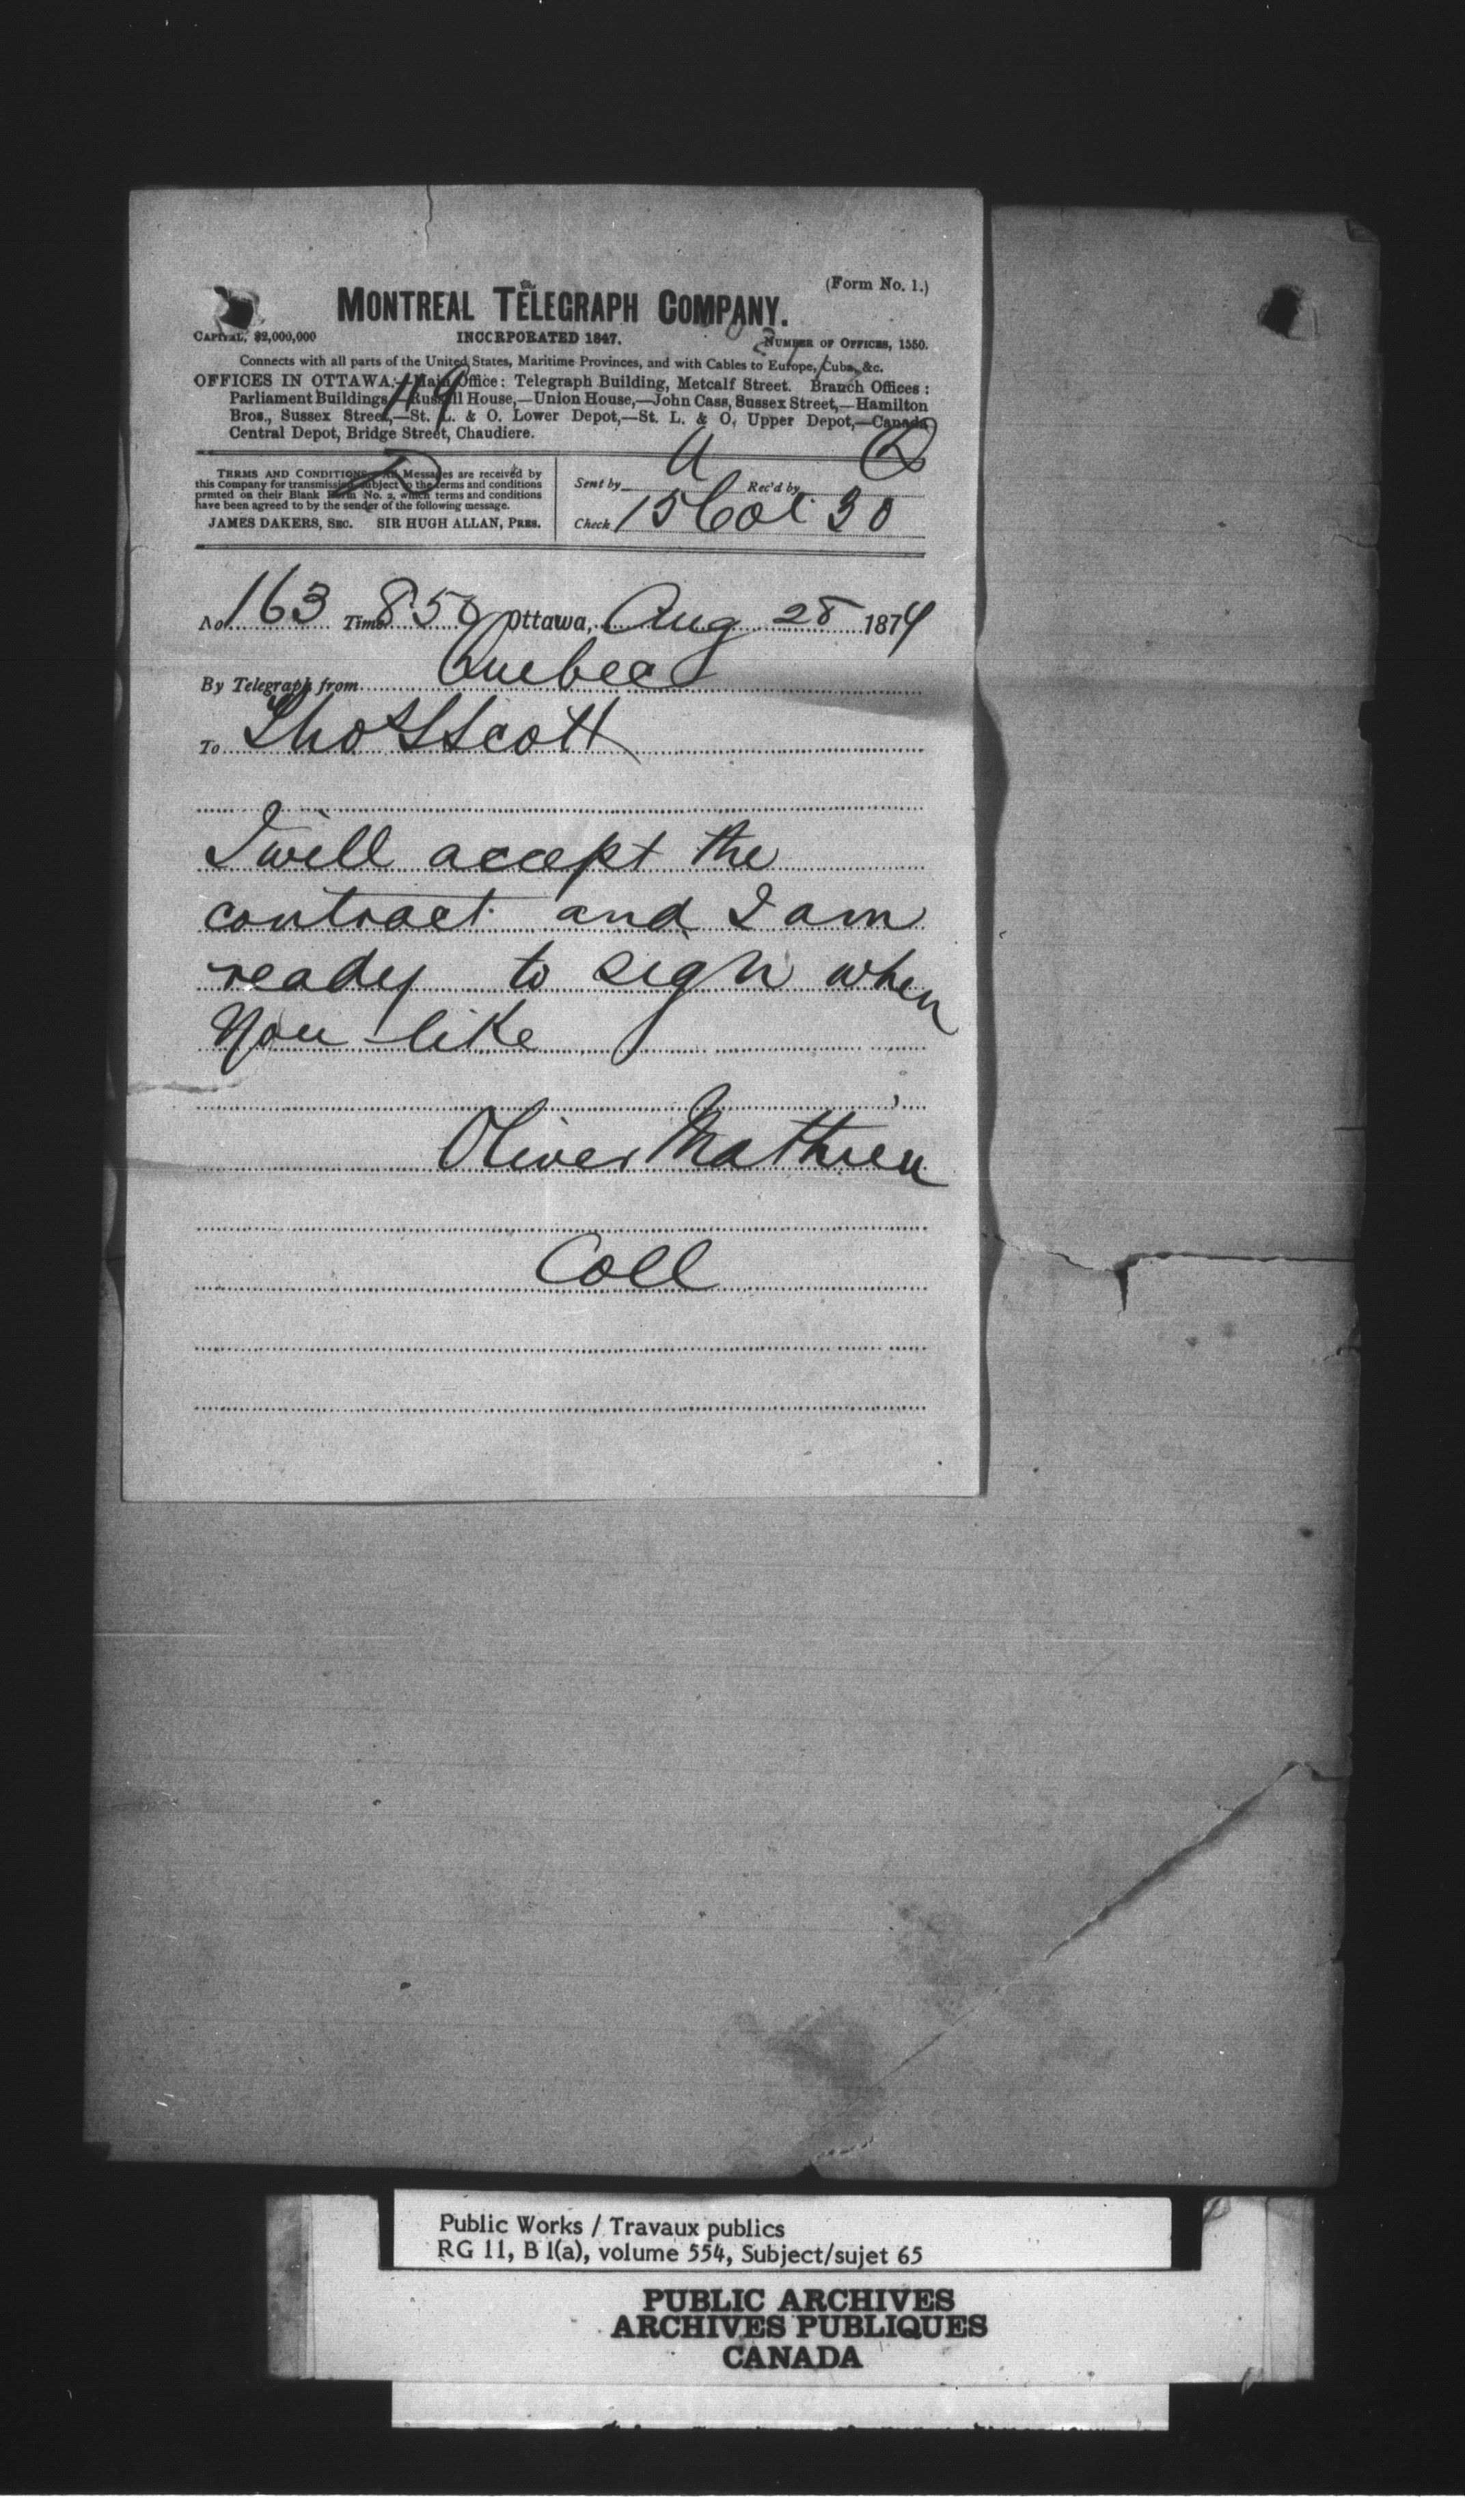 (Form No. 1.)
MONTREAL TELEGRAPH COMPANY.
CAPITAL, $2,000,000 INCORPORATED 1847. NUMBER OF OFFICES, 1550.
Connects with all parts of the United States, Maritime Provinces, and with Cables to Europe, Cuba, &c.
OFFICES IN OTTAWA:—Main Office: Telegraph Building, Metcalf Street. Branch Offices:
Parliament Buildings,—Russell House,—Union House,—John Cass, Sussex Street,—Hamilton
Bros., Sussex Street,—St. L. & O. Lower Depot,—St. L. & O. Upper Depot,—Canada
Central Depot, Bridge Street, Chaudiere.
49
TERMS AND CONDITIONS.—All Messages are received by
this Company for transmission, subject to the terms and conditions
printed on their Blank Form No. 2, which terms and conditions
have been agreed to by the sender of the following message.
JAMES DAKERS, SEC. SIR HUGH ALLAN, PRES.
Sent by U Rec'd by
Check 15 Col 30
No. 163 Time 850 Ottawa, Aug 28 1874
By Telegraph from Quebec
To Thos Scott
I will accept the
contract and I am
ready to sign when
you like
Oliver Mathieu
Coll
Public Works / Travaux publics
RG 11, B 1(a), volume 554, Subject/sujet 65
PUBLIC ARCHIVES
ARCHIVES PUBLIQUES
CANADA